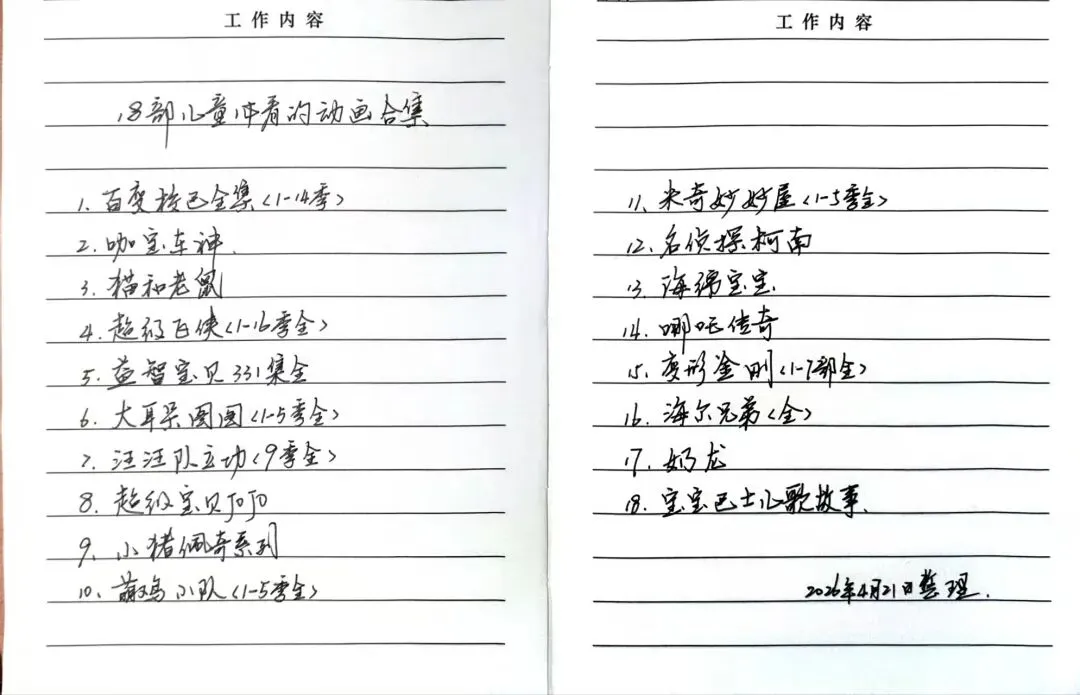 工作内容
18部儿童必看的动画合集
1、百变校巴全集<1-14季>
2、咖宝车神、
3、猫和老鼠
4、超级飞侠<1-16季全>
5、益智宝贝331集全
6、大耳朵图图<1-5季全>
7、汪汪队立功<9季全>
8、超级宝贝JOJO
9、小猪佩奇系列
10、萌鸡小队<1-5季全>
工作内容
11、米奇妙妙屋<1-5季全>
12、名侦探柯南
13、海绵宝宝
14、哪吒传奇
15、变形金刚<1-7部全>
16、海尔兄弟<全>
17、奶龙
18、宝宝巴士儿歌故事、
2026年4月21日整理、